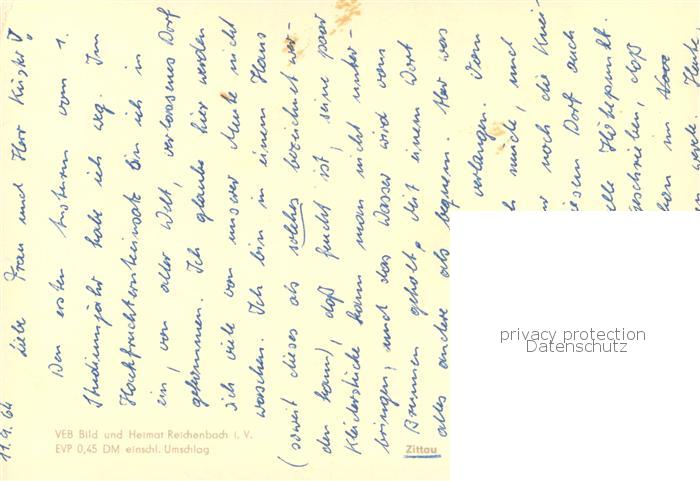 11.9.64
Liebe Frau und Herr
Den ersten vom 1.
Studienjahr habe ich weg. Im
Hackfruchternteeinsatz bin ich in
ein, von aller Welt, verlassenes Dorf
gekommen. Ich glaube hier werden
sich viele von unserer Meute nicht
waschen. Ich bin in einem Haus
(soweit dieses als solches bezeichnet wer-
den kann), daß feucht ist, seine paar
Kleiderstücke kann man nicht unter-
bringen, und das Wasser wird vom
Brunnen geholt. Mit einem Wort
alles andere als bequem. Wer was
verlangen. Denn
müde, und
nur noch die Knei-
diesem Dorf auch
Höhepunkt.
geschrieben, daß
schon im
werde. Heute,
VEB Bild und Heimat Reichenbach i. V.
EVP 0,45 DM einschl. Umschlag
Zittau
privacy protection
Datenschutz